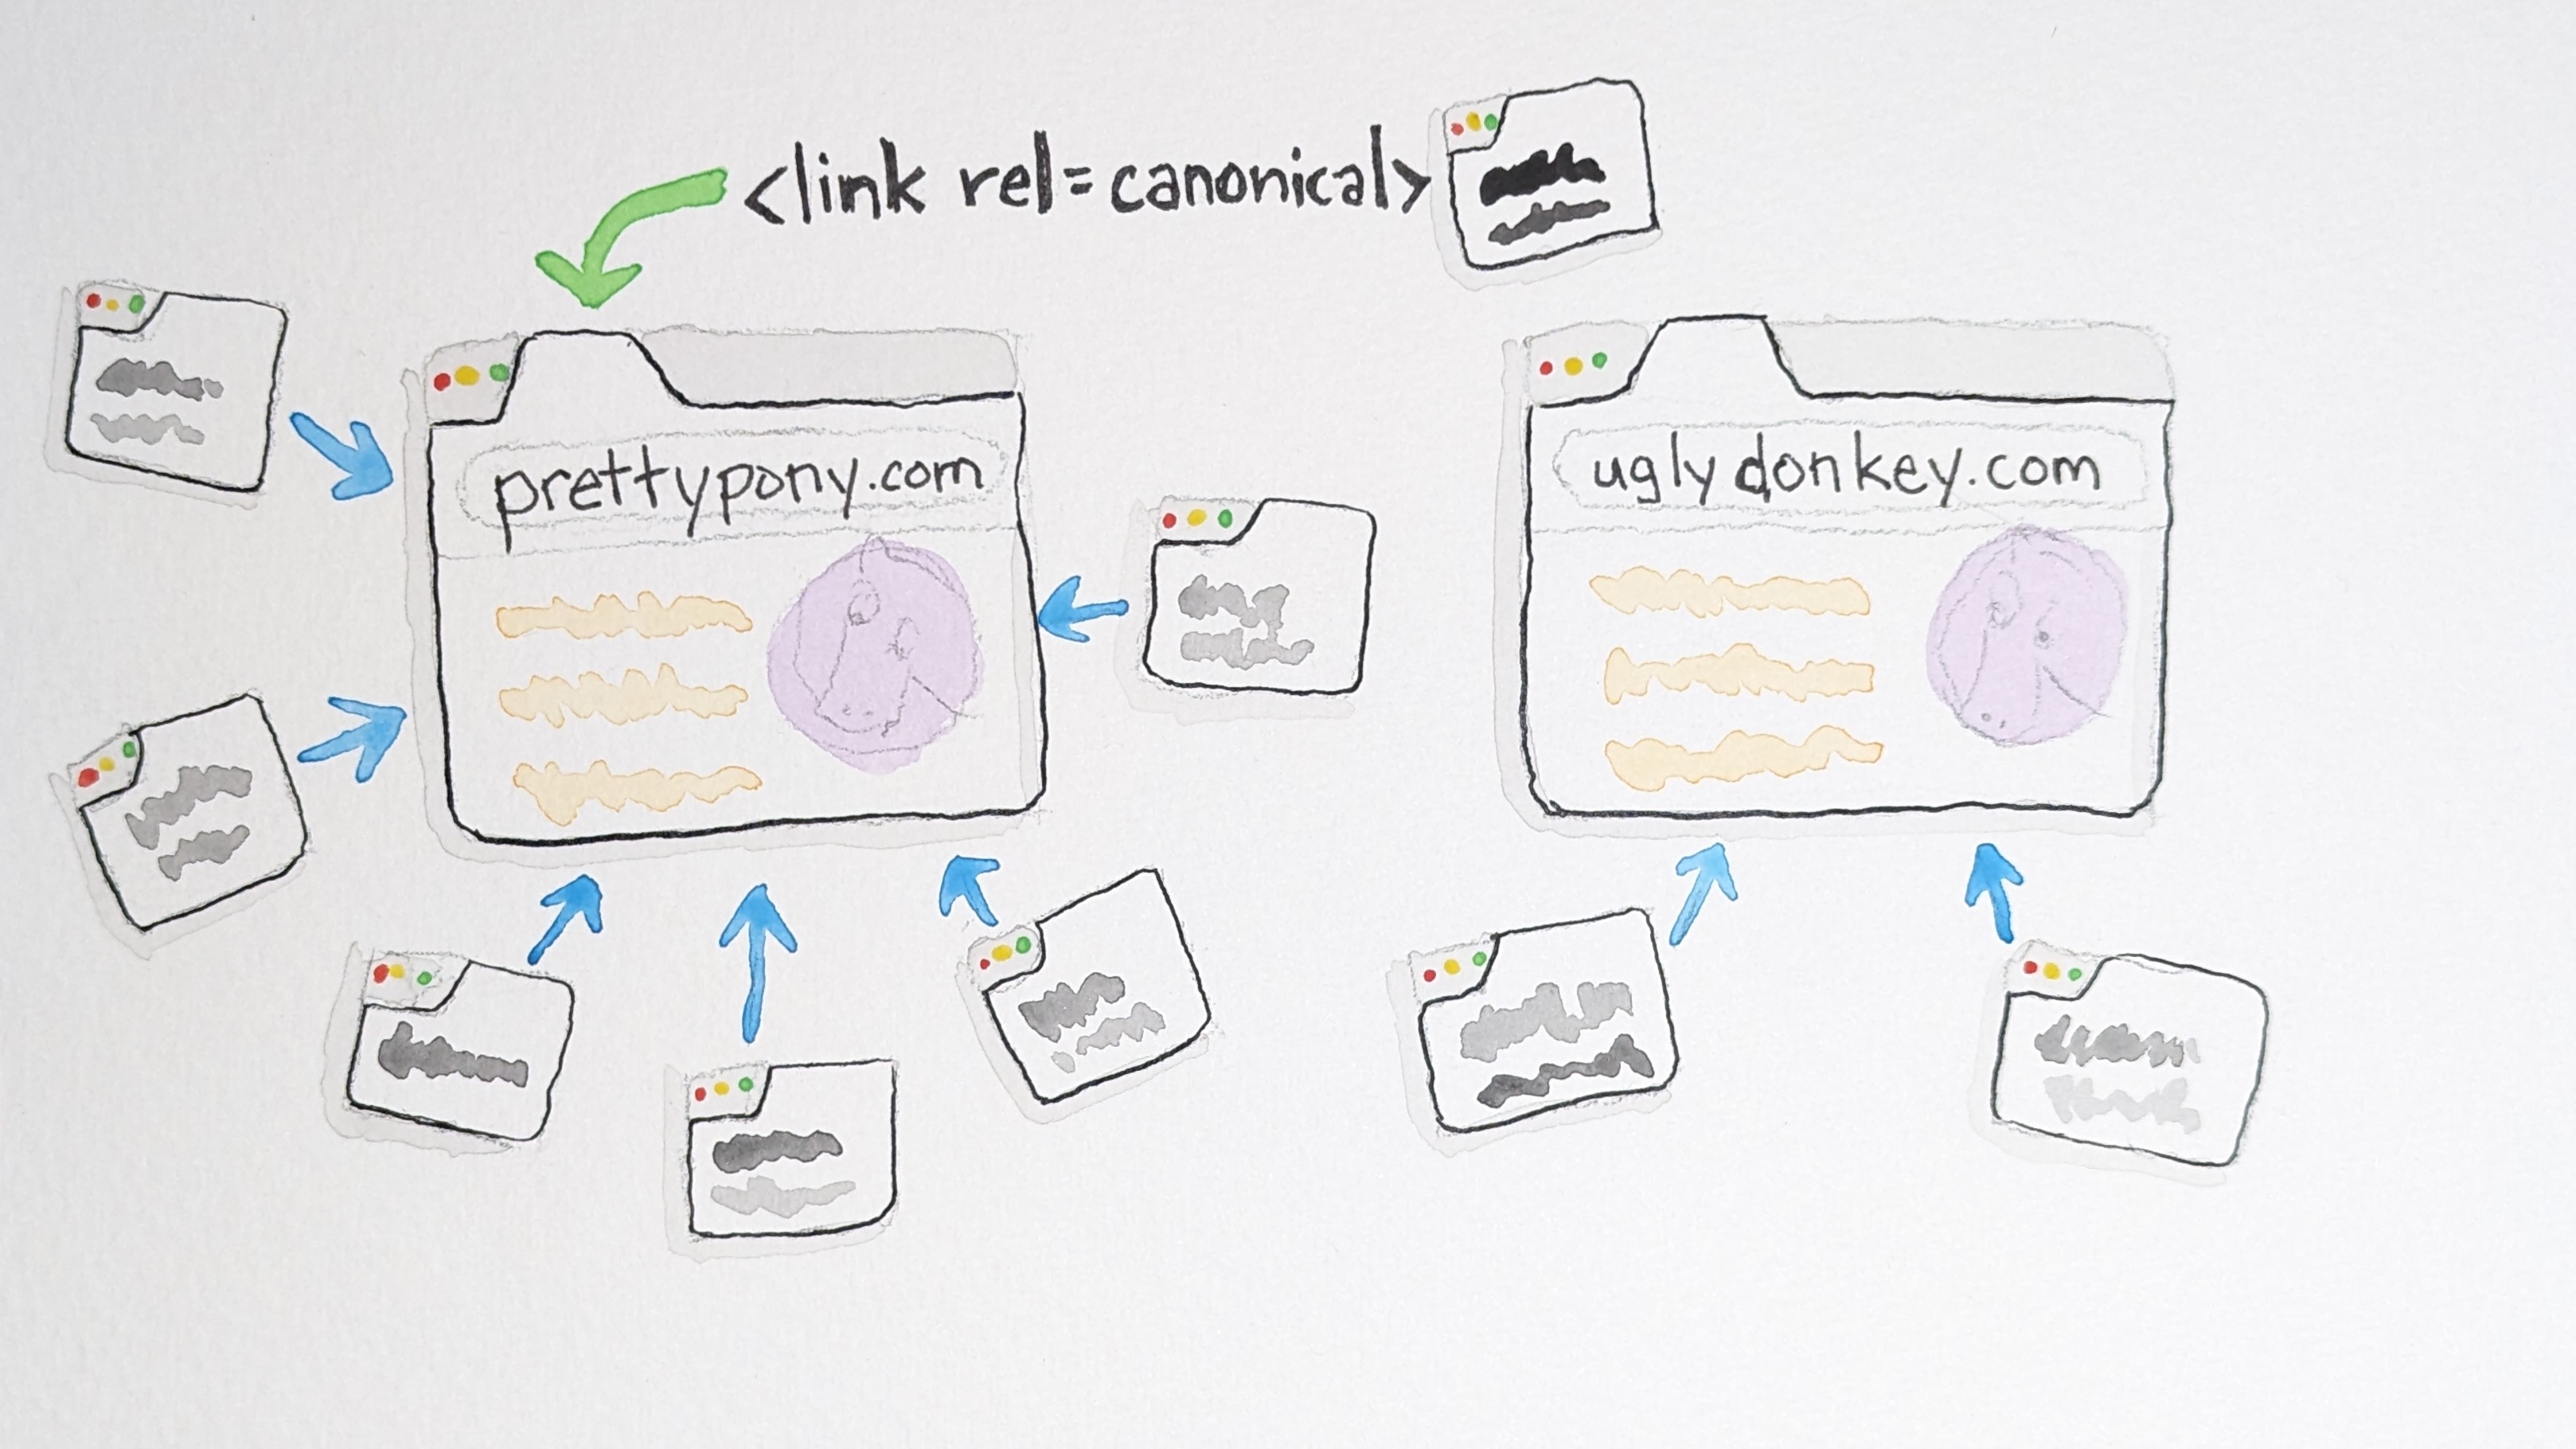 <link rel=canonical>
prettypony.com
uglydonkey.com